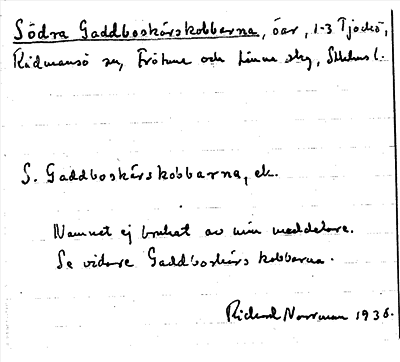 Södra Gaddboskärskobbarna, öar, 1-3 Tjockö,
Rådmansö sn, Frötuna och Länna skg, Sthlms l.
S. Gaddboskärskobbarna, ek.
Namnet ej brukat av min meddelare.
Se vidare Gaddboskärskobbarna.
Richard Norrman 1936.